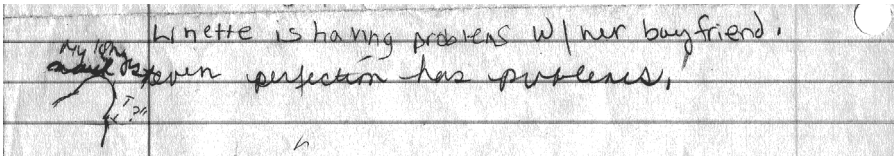 Linette is having problems w/ her boyfriend.
even perfection has problems.
My long